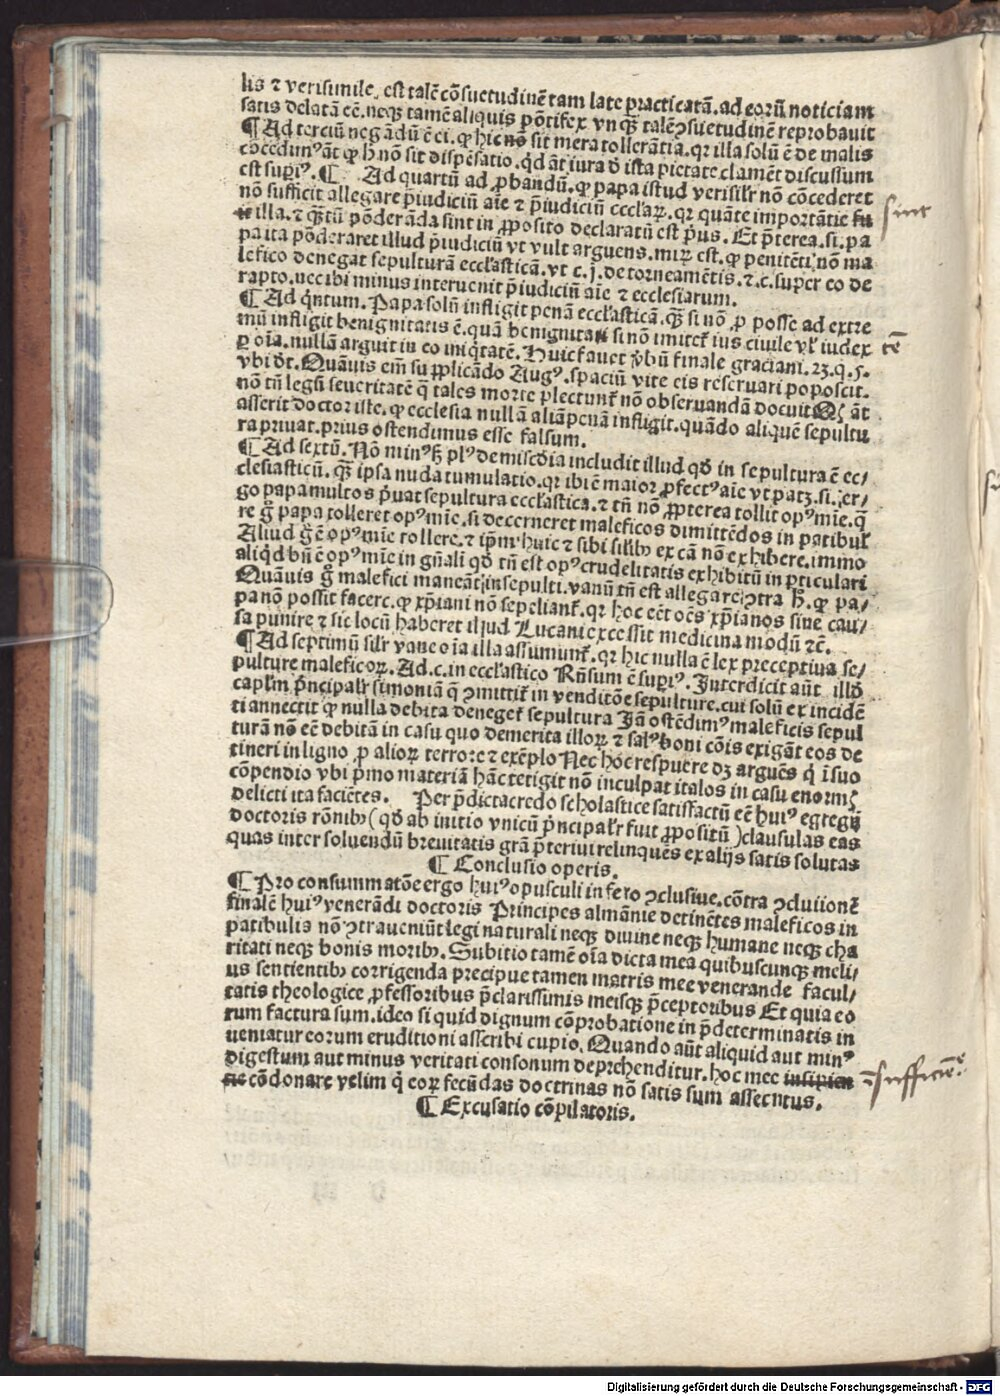 lis ⁊ verisimile. est talē cōsuetudinē tam late practicatā. ad eorū noticiam
satis delatā eē. neq3 tamē aliquis pōtifex vnq̃3 talē ꝯsuetudinē reprobauit
¶ Ad terciū negādū ē ei. ꝙ hic nō sit mera tollerātia. qꝛ illa solū ē de malis
cōcedunꝰ āt ꝙ h̄ nō sit dispēsatio. qd̄ āt iura d̄ ista pietate clamēt discussum
est supiꝰ. ¶ Ad quartū ad ꝓbandū. ꝙ papa istud verisilr̄ nō cōcederet
nō sufficit allegare p̄iudiciū aīe ⁊ p̄iudiciū eccl̄aꝝ. qꝛ quāte importātie su sint
nt illa. ⁊ q̄3tū pōderāda sint in ꝓposito declaratū est p̄us. Et p̄terea. si. pa
pa ita pōderaret illud p̄iudiciū vt vult arguens. miꝝ est. ꝙ penitēti nō ma
lefico denegat sepulturā eccl̄asticā. vt c. j. de torneamētis. ⁊. c. super eo de
rapto. nec ibi minus interuenit p̄iudiciū aīe ⁊ ecclesiarum.
¶ Ad q̄ntum. Papa solū infligit penā eccl̄asticā. q̄3 si nō ꝓ posse ad extre
mū infligit benignitatis ē. quā benignitati si nō imitet̄ ius ciuile vl̄ iudex tē
ꝑ oīa. nullā arguit in eo iniq̄tatē. Huic fauet ꝟbū finale graciani. 23. q. 5.
vbi dt̄. Quāuis em̄ supplicādo Augꝰ. spaciū vite eis reseruari poposcit.
nō tn̄ legū seueritatē q̄ tales morte plectunt̄ nō obseruandā docuit Q3 āt
asserit doctor iste. ꝙ ecclesia nullā aliā penā infligit. quādo aliquē sepultu
ra priuat. prius ostendimus esse falsum.
¶ Ad sextū. Nō minꝰ s3 plꝰ de mis̄cdia includit illud qd̄ in sepultura ē ec/
clesiasticū. q̄3 ipsa nuda tumulatio. qꝛ ibi ē maior ꝓfectꝰ aīe vt pat3. si. er/
go papa multos p̄uat sepultura eccl̄astica. ⁊ tn̄ nō ꝓpterea tollit opꝰ mīe. q̄
re g̊ papa tolleret opꝰ mīe. si decerneret maleficos dimittēdos in patibul̄
Aliud g̊ ē opꝰ mīe tollere. ⁊ ip̄m huic ⁊ sibi silib3 ex cā nō exhibere. immo
aliqd̄ bn̄ ē opꝰ mīe in gn̄ali qd̄ tn̄ est opꝰ crudelitatis exhibitū in particulari
Quāuis g̊ malefici maneāt insepulti. vanū tn̄ est allegare ꝯtra h̄. ꝙ pa/
pa nō possit facere. ꝙ xp̄iani nō sepeliant̄. qꝛ hoc eēt oēs xp̄ianos sine cau/
sa punire ⁊ sic locū haberet illud Lucani excessit medicina modū ⁊c̄.
¶ Ad septimū silr̄ vane oīa illa assumunt̄. qꝛ hic nulla ē lex preceptiua se/
pulture maleficoꝝ. Ad. c. in eccl̄astico Rn̄sum ē supiꝰ. Interdicit aūt illd̄
capl̄m p̄ncipalr̄ simoniā q̄ ꝯmittit̄ in venditōe sepulture. cui solū ex incidē
ti annectit ꝙ nulla debita deneget̄ sepultura Jā ostēdimꝰ maleficis sepul
turā nō eē debitā in casu quo demerita illoꝝ ⁊ salꝰ boni cōis exigāt eos de
tineri in ligno ꝓ alioꝝ terrore ⁊ exēplo Nec hoc respuere d3 arguēs q̇ ī suo
cōpendio vbi p̄mo materiā hāc tetigit nō inculpat italos in casu enormꝭ
delicti ita faciētes. Per p̄dicta credo scholastice satisfactū eē huiꝰ egregij
doctoris rōnib3 (qd̄ ab initio vnicū p̄ncipalr̄ fuit ꝓpositū) clausulas eas
quas inter soluendū breuitatis grā p̄teriui relinquēs ex alijs satis solutas
¶ Conclusio operis.
¶ Pro consummatōe ergo huiꝰ opusculi infero ꝯclusiue. cōtra ꝯclusionē
finalē huiꝰ venerādi doctoris Principes almānie detinētes maleficos in
patibulis nō ꝯtraueniūt legi naturali neq3 diuine neq3 humane neq3 cha
ritati neq3 bonis morib3. Subiicio tamē oīa dicta mea quibuscunq3 meli/
us sentientib3 corrigenda precipue tamen matris mee venerande facul/
tatis theologice ꝓfessoribus p̄clarissimis meisq3 p̄ceptoribus Et quia eo
rum factura sum. ideo si quid dignum cōprobatione in p̄determinatis in
ueniatur eorum eruditioni asscribi cupio. Quando aūt aliquid aut minꝰ
digestum aut minus veritati consonum deprehenditur. hoc mee insipien īsufficiē͞e.
tie cōdonare velim q̇ eoꝝ fecūdas doctrinas nō satis sum assecutus.
¶ Excusatio cōpilatoris.